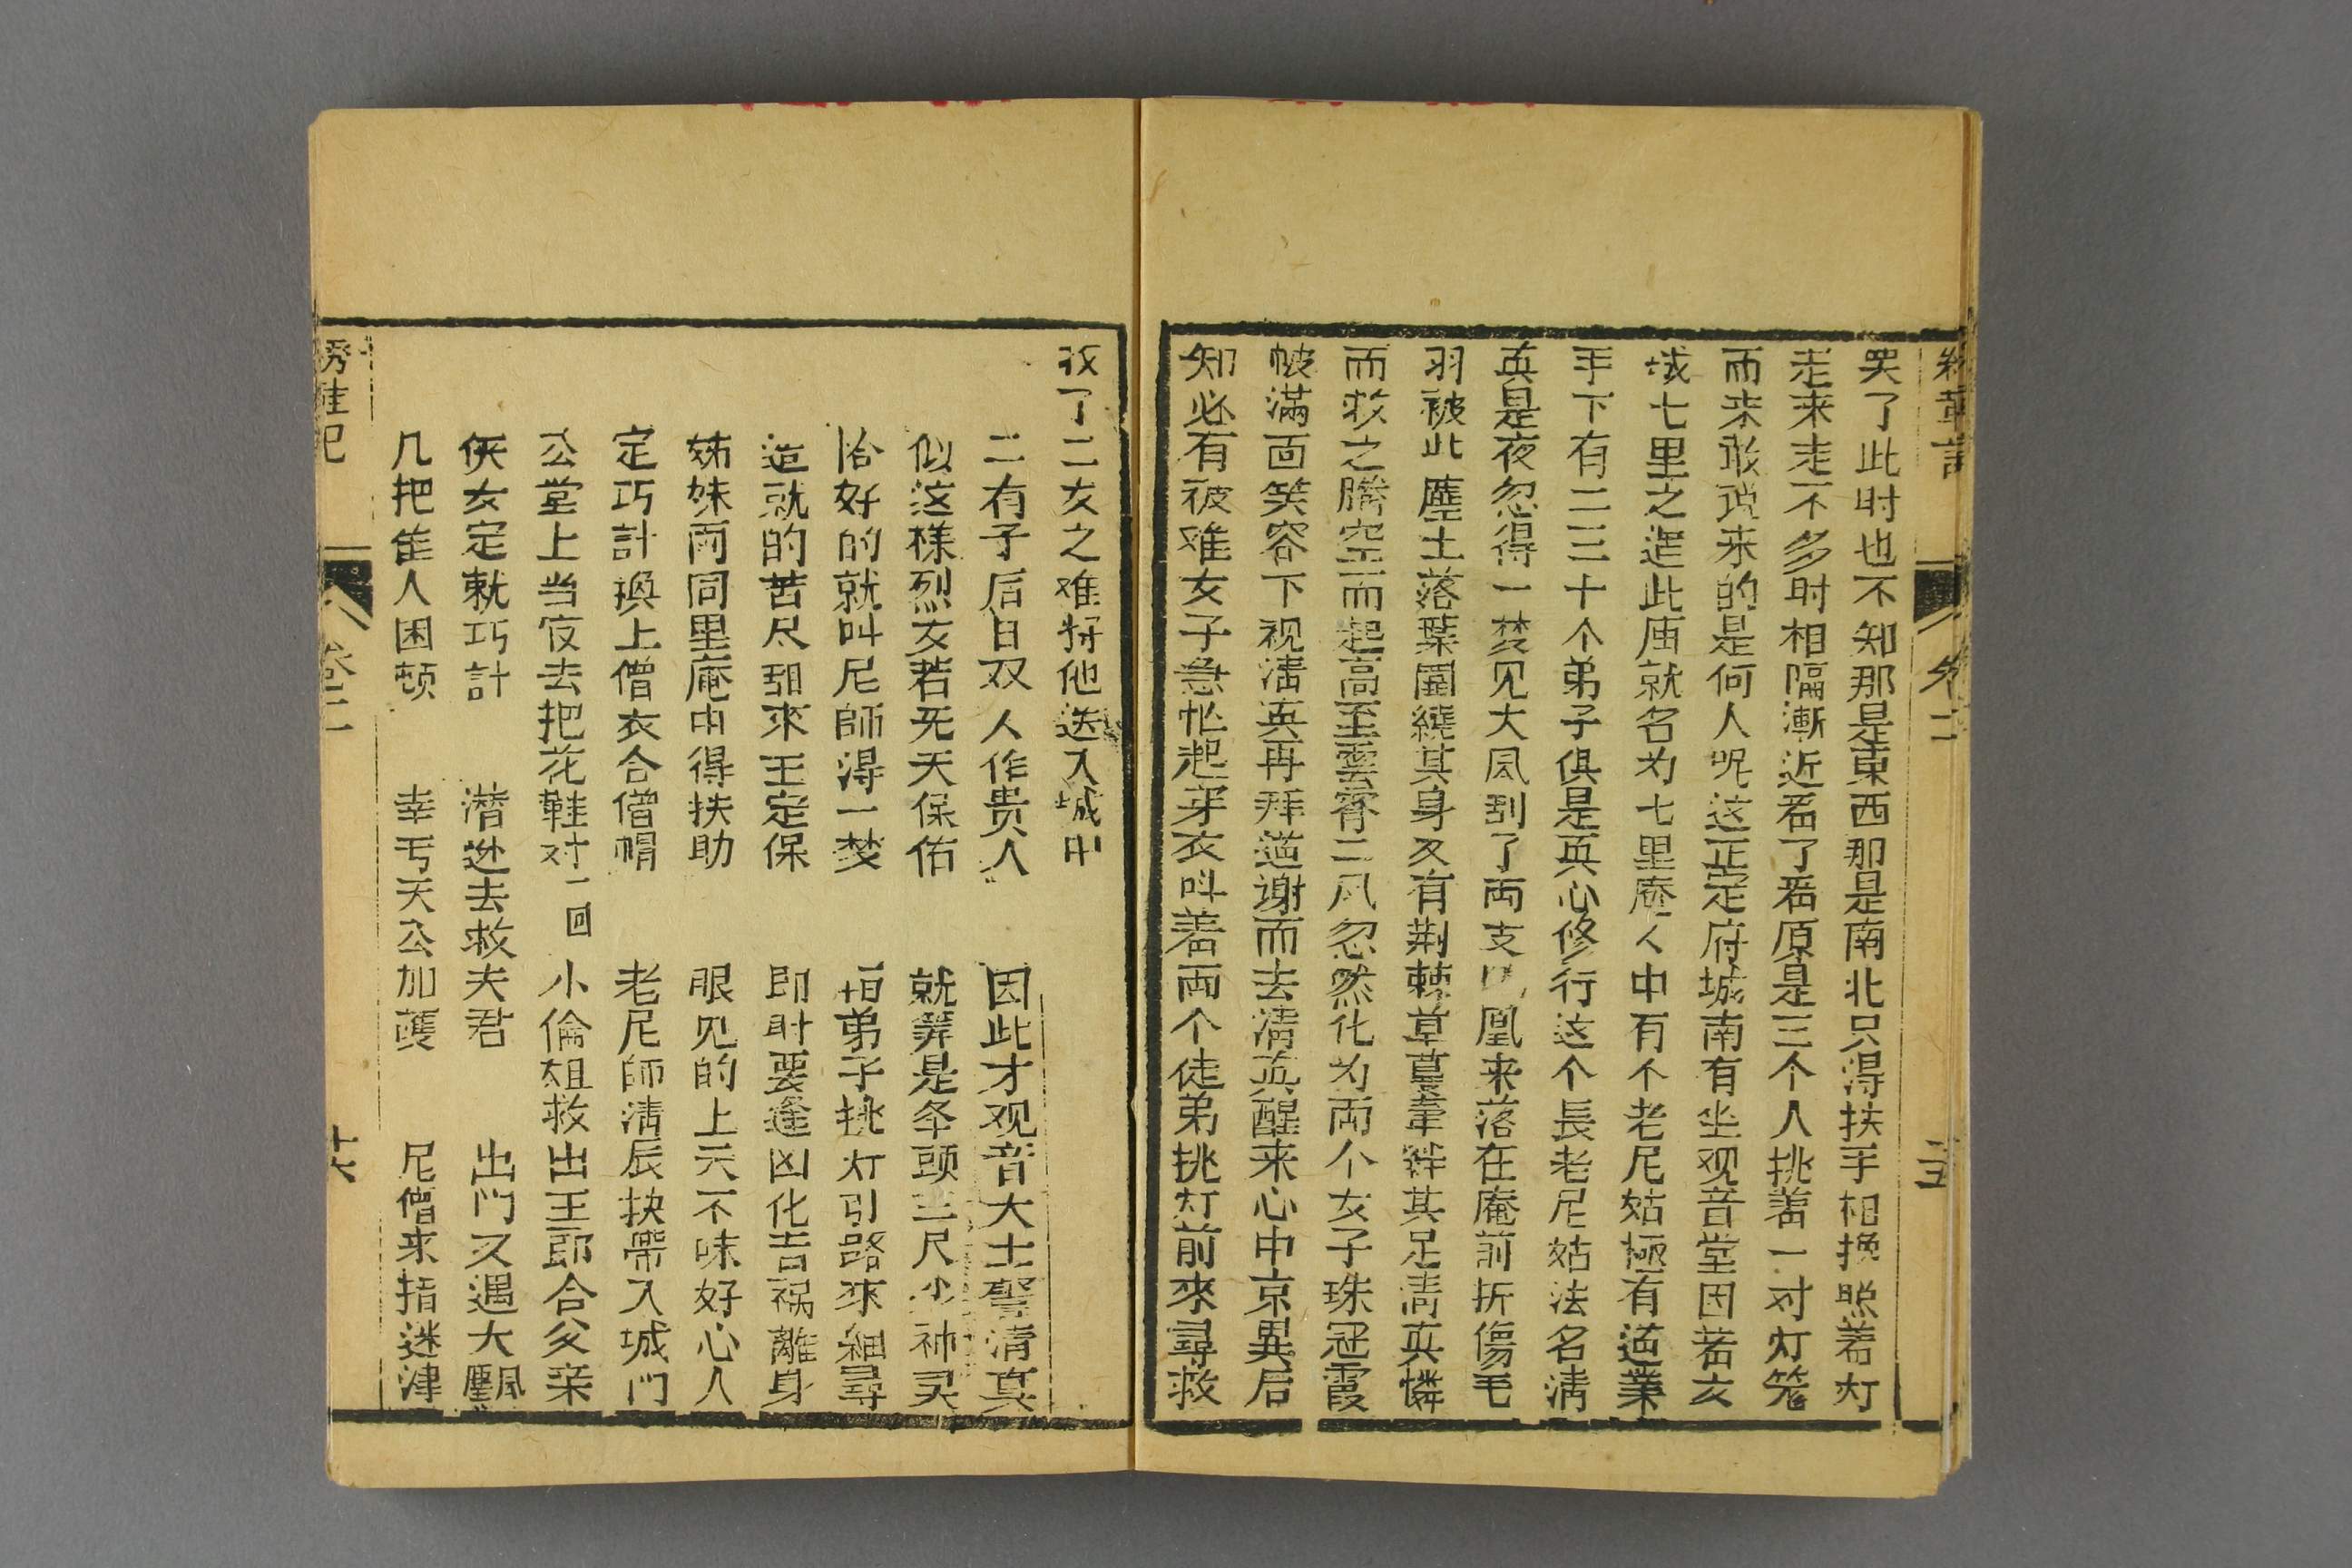 卷二
哭了此时也不知那是東西那是南北只得扶手相挽照着灯
走来走不多时相隔漸近看了看原是三个人挑着一对灯笼
而来敢说来的是何人呢这正定府城南有坐观音堂因若女
城七里之遥此庙就名为七里庵人中有个老尼姑極有道業
手下有二三十个弟子俱是真心修行这个長老尼姑法名清
真是夜忽得一梦见大風刮了両支凤凰来落在庵前折傷毛
羽被此塵土落葉圍繞其身又有荆棘草蔓牽絆其足清真憐
而救之騰空而起高至雲霄二风忽然化为両个女子珠冠霞
帔滿面笑容下视清真再拜道谢而去清真醒来心中京異后
知必有被难女子急忙起穿衣叫着両个徒弟挑灯前來尋救
救了二女之难将他送入城中
二有子后日双人作贵人　因此才观音大士警清真
似这樣烈女若死天保佑　就筭是举頭三尺少神灵
恰好的就叫尼師得一梦　指弟子挑灯引路來細尋
造就的苦尽甜來王定保　即时要逢凶化吉祸離身
姊妹両同里庵中得扶助　眼见的上天不昧好心人
定巧計換上僧衣合僧帽　老尼師清辰抉帶入城门
公堂上当夜去把花鞋对　小倫姐救出王郎合父亲
一回
侠女定就巧計　潜逃去救夫君　出门又遇大飄
几把佳人困頓　幸亏天公加護　尼僧来指迷津
绣鞋记　卷二　十六